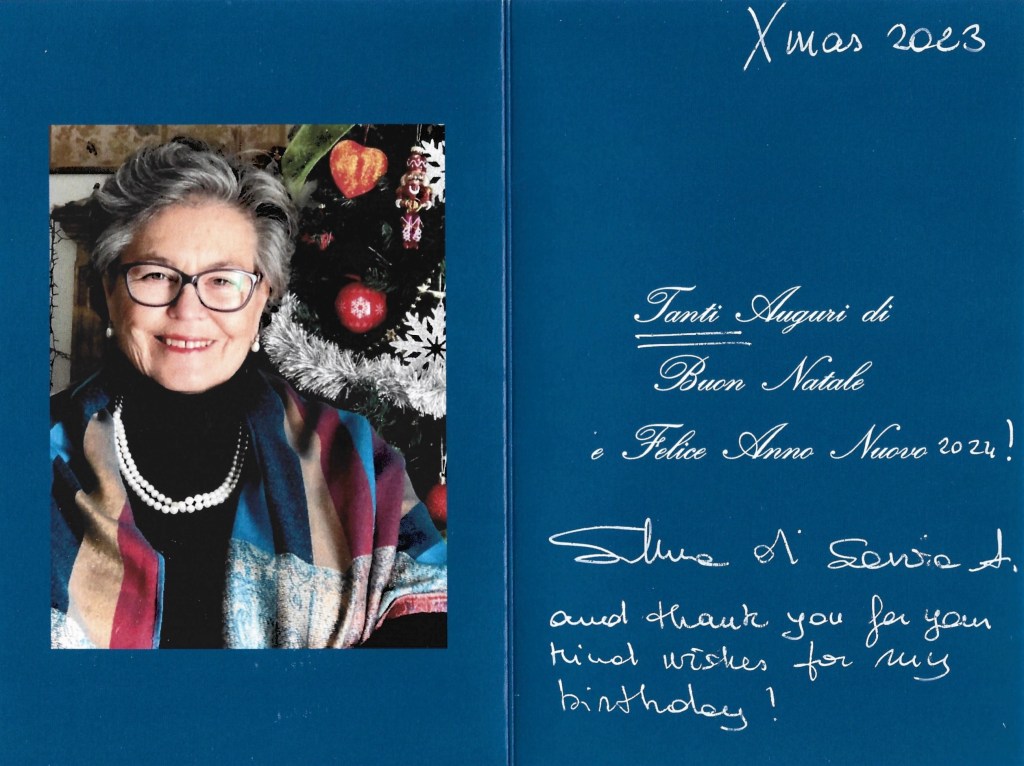 Xmas 2023
Tanti Auguri di
Buon Natale
e Felice Anno Nuovo 2024!
Silvia di Savoia A.
and thank you for your
kind wishes for my
birthday!